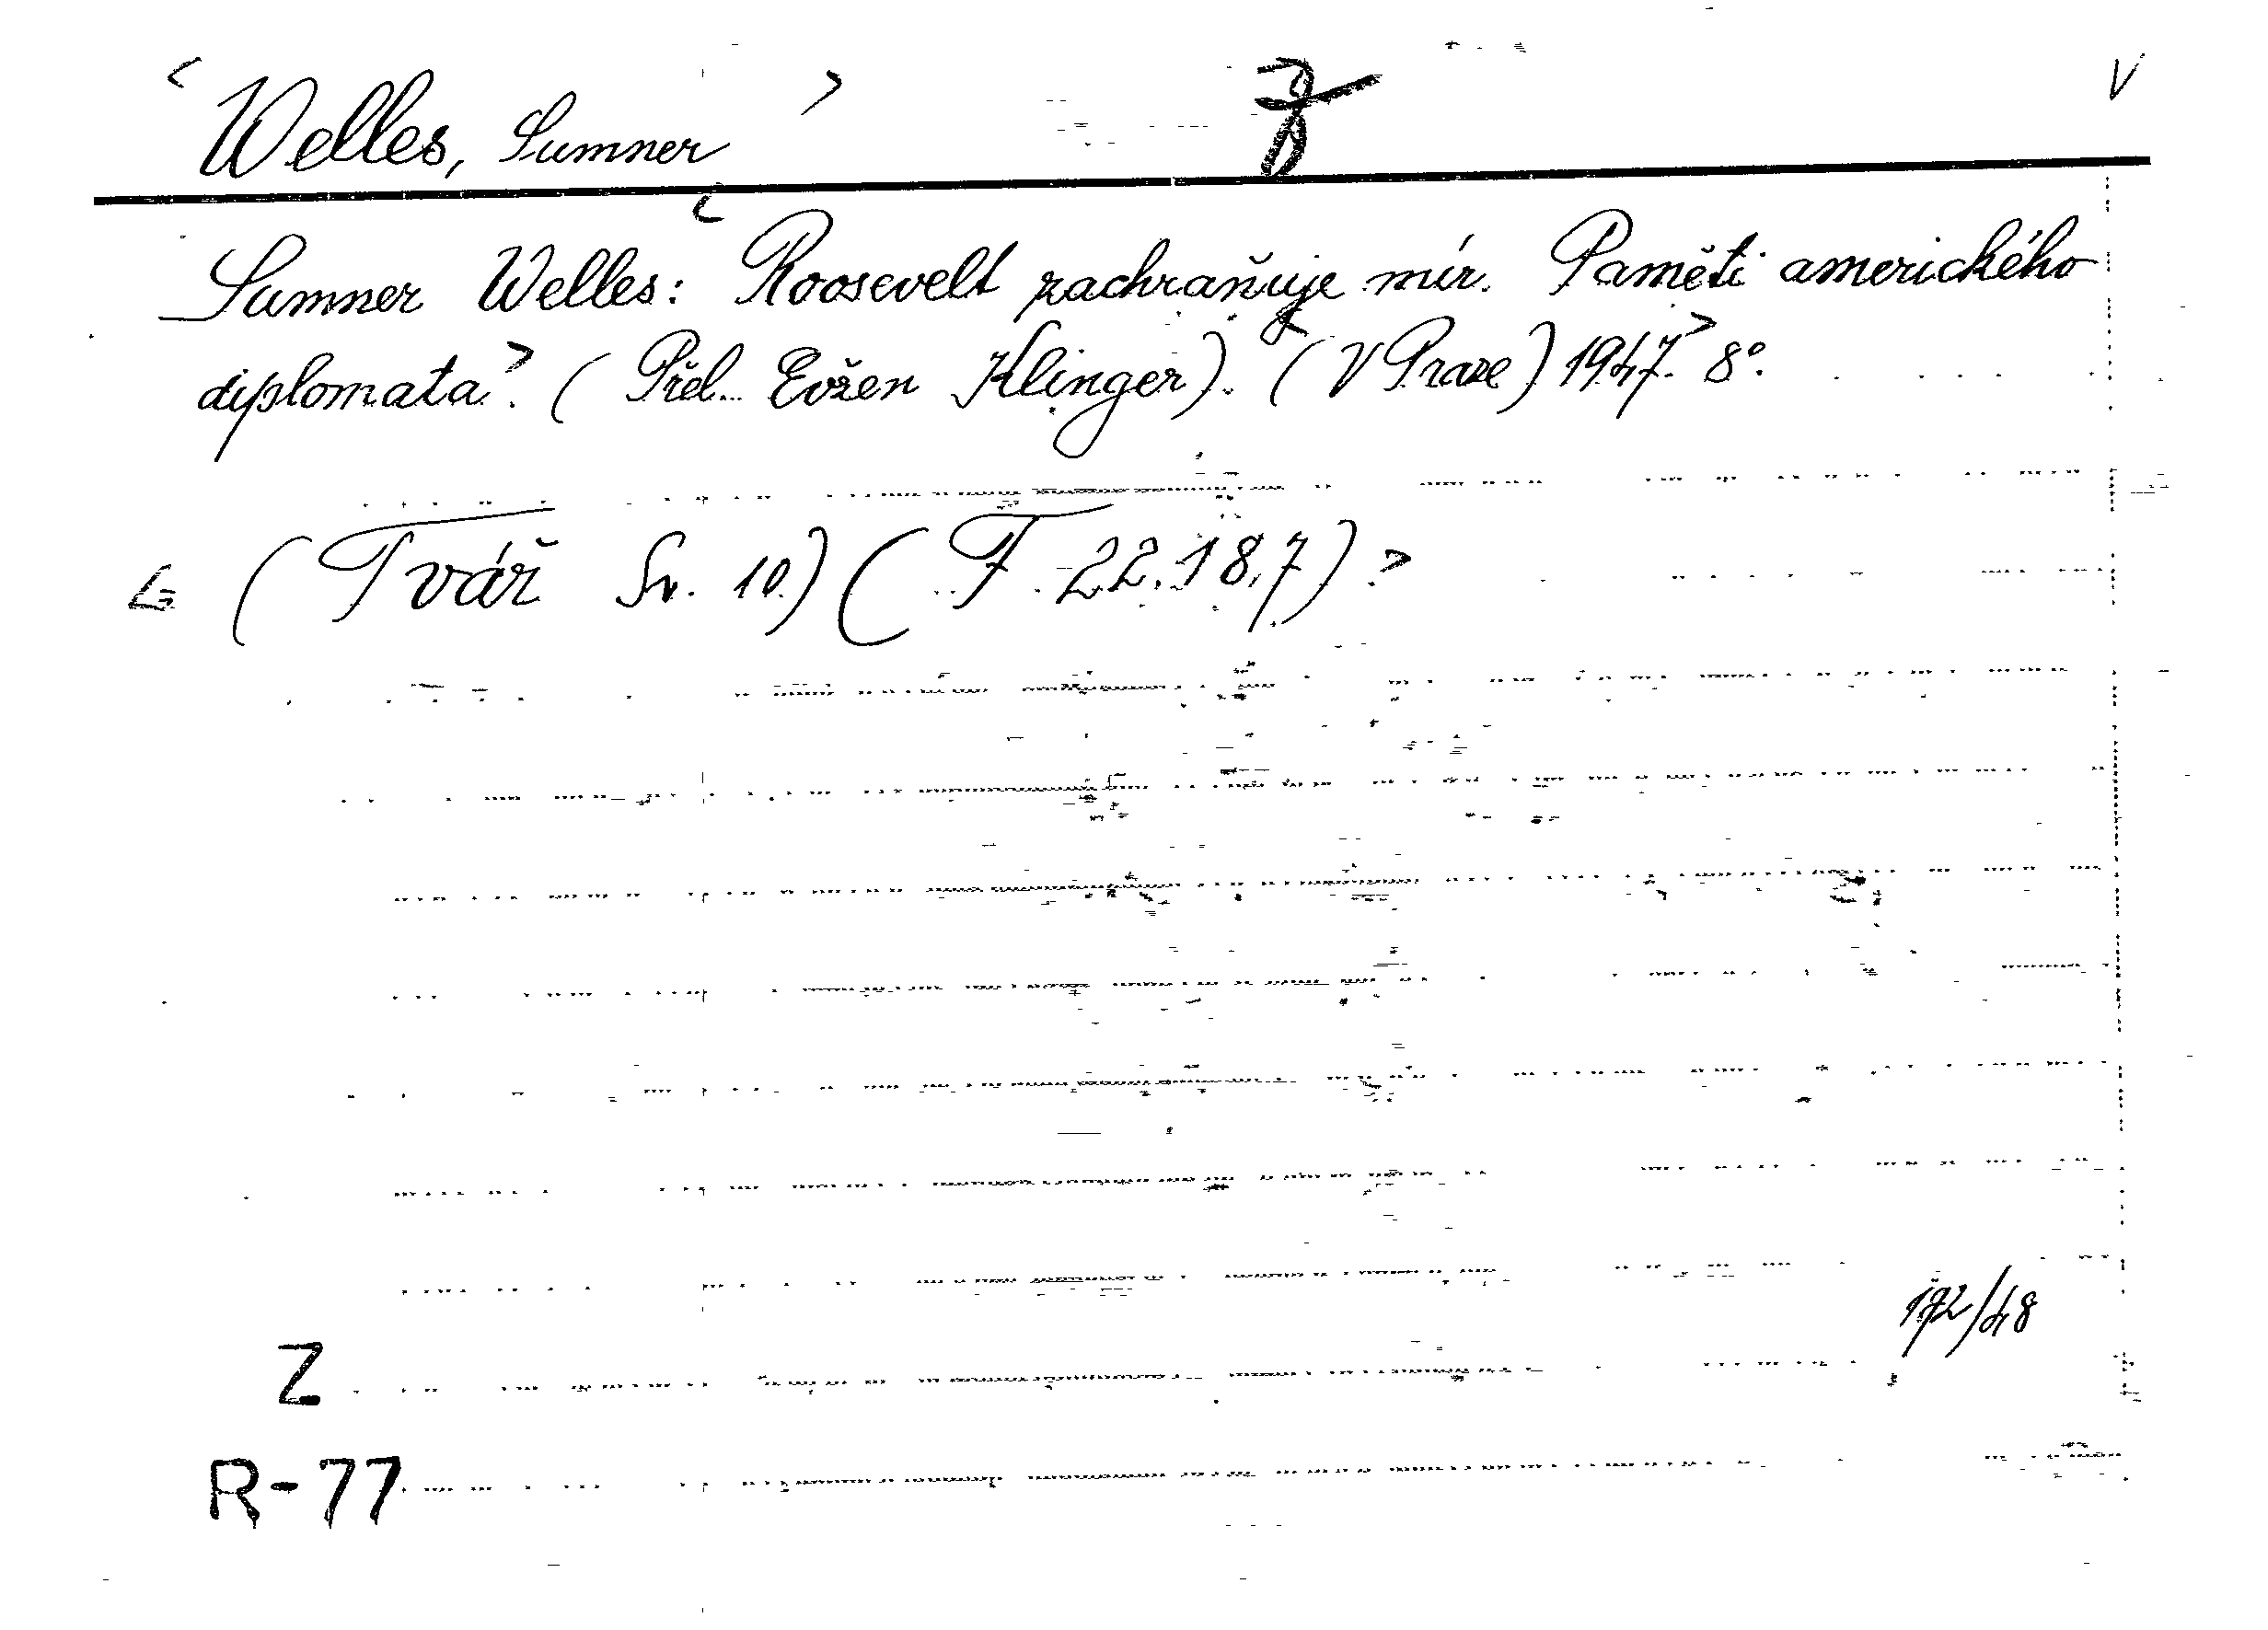 Welles, Sumner V
Sumner Welles: Roosevelt zachraňuje mír. Paměti amerického
diplomata. (Přel. Evžen Klinger). (V Praze) 1947. 8°.
(Tvář Sv. 10.) (F 22.187)
192/48
Z
R-77